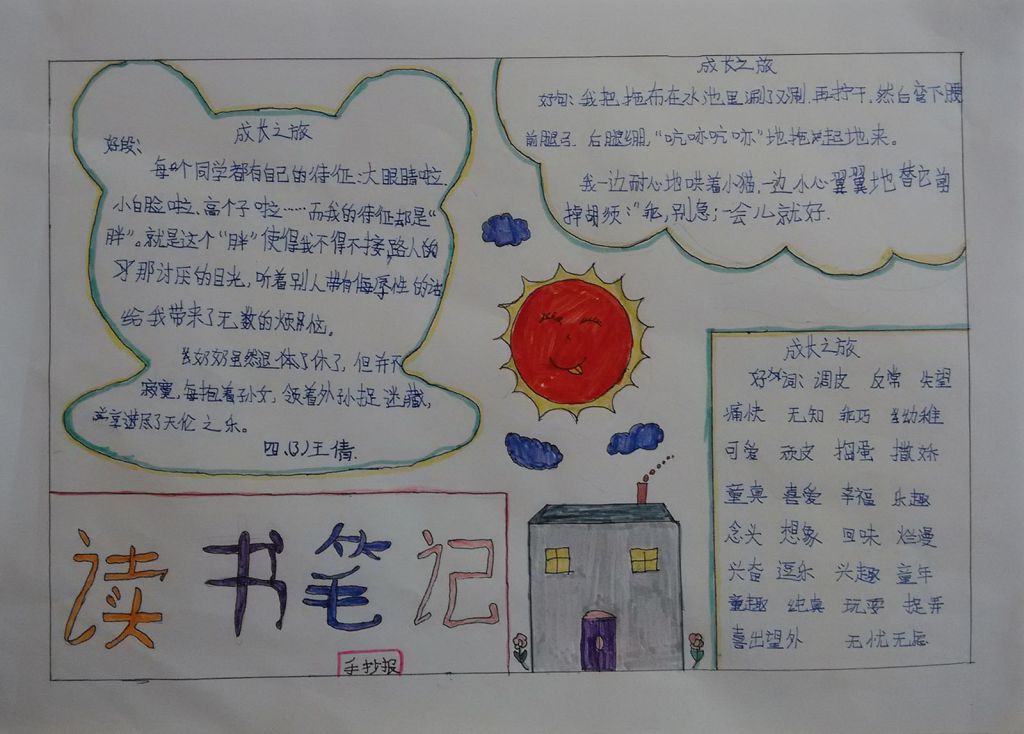 成长之旅
好段:
每个同学都有自己的特征:大眼睛啦、
小白脸啦、高个子啦……而我的特征却是“
胖”。就是这个“胖”使得我不得不接路人的
那讨厌的目光,听着别人带有侮辱性的话
给我带来了无数的烦恼。
奶奶虽然退休了,但并不
寂寞,每抱着孙女,领着外孙捉迷藏,
享进尽了天伦之乐。
四、(3)王倩.
成长之旅
好句:我把拖布在水池里涮了又涮,再拧干,然后弯下腰
前腿弓,后腿绷,“吭哧吭哧”地拖起地来。
我一边耐心地哄着小猫,一边小心翼翼地替它剪
掉胡须:“乖,别急;一会儿就好.
成长之旅
好词:调皮 反常 失望
痛快 无知 乖巧 幼稚
可爱 顽皮 捣蛋 撒娇
童真 喜爱 幸福 乐趣
念头 想象 回味 烂漫
兴奋 逗乐 兴趣 童年
童趣 纯真 玩耍 捉弄
喜出望外 无忧无虑
读书笔记
手抄报